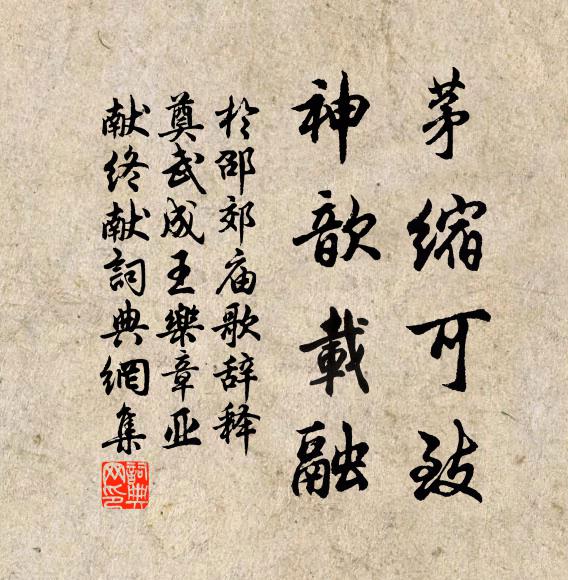 茅缩可致
神歆載融
於邵郊庙歌辞释
奠武成王樂章亚
献终献詞典網集
詞典网印